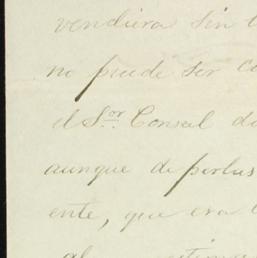 vendiera sin
no puede ser
el Sor. Consul
aunque de perlas
ente, que era